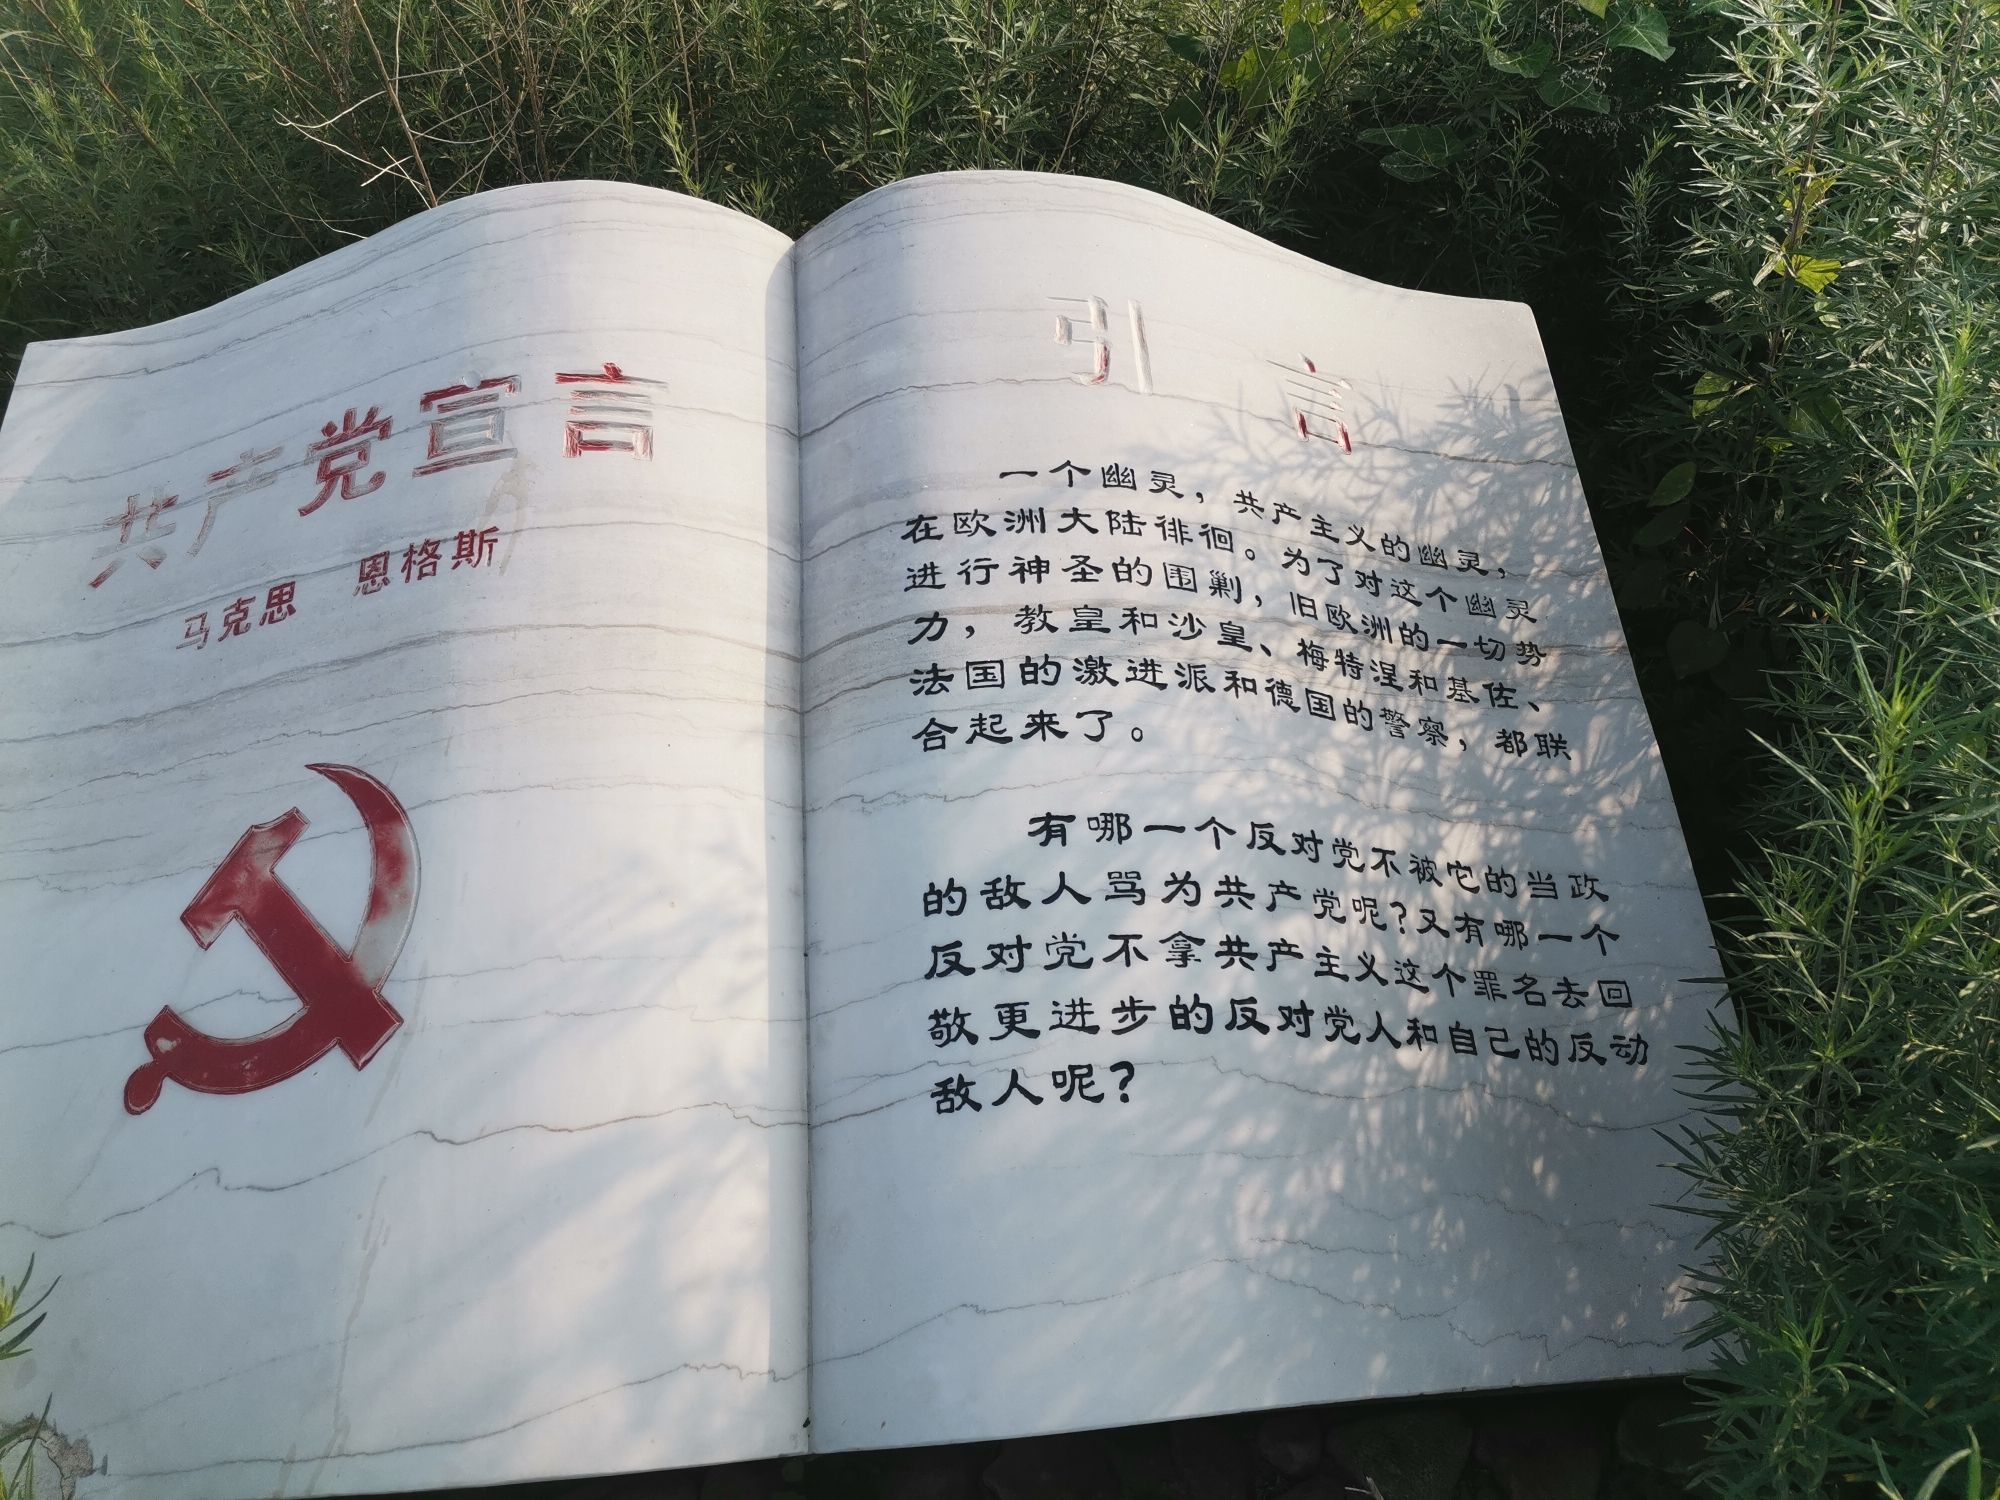 共产党宣言
马克思 恩格斯
引言
一个幽灵，共产主义的幽灵，
在欧洲大陆徘徊。为了对这个幽灵
进行神圣的围剿，旧欧洲的一切势
力，教皇和沙皇、梅特涅和基佐、
法国的激进派和德国的警察，都联
合起来了。
有哪一个反对党不被它的当政
的敌人骂为共产党呢？又有哪一个
反对党不拿共产主义这个罪名去回
敬更进步的反对党人和自己的反动
敌人呢？